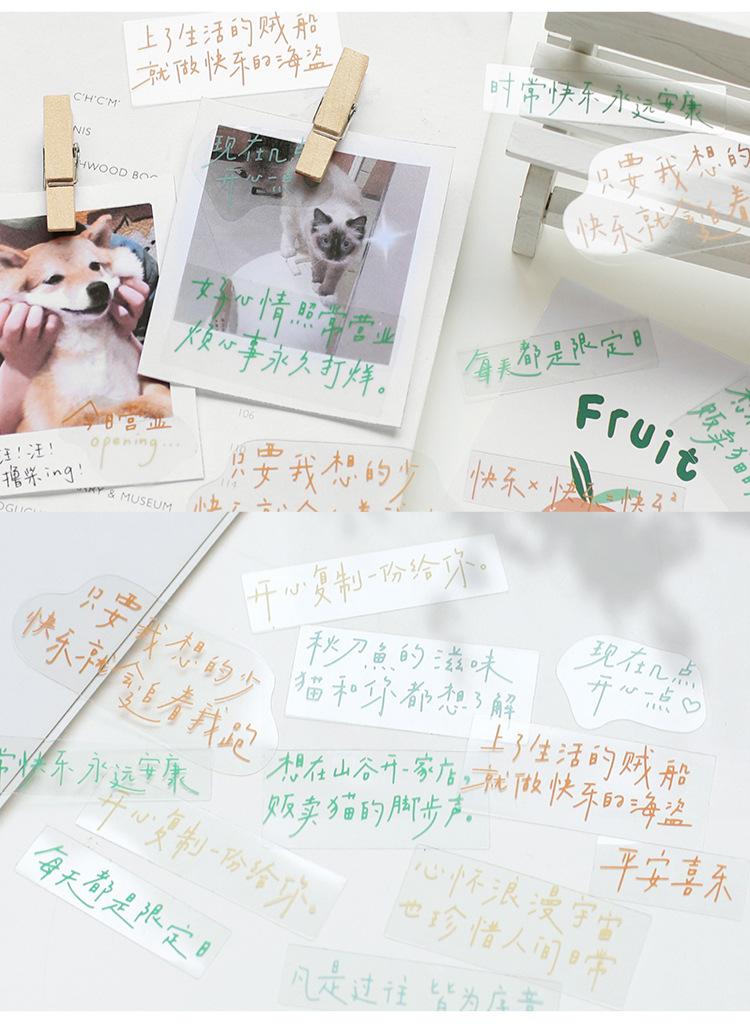 上了生活的贼船
就做快乐的海盗
C'H'C'M'
NIS
HWOOD BOO
时常快乐 永远安康
只要我想的
快乐就会追着
现在几点
开心一点
好心情照常营业
烦心事永久打烊。
每天都是限定日
今日营业
opening...
汪!汪!
撸柴ing!
106
114
RY & MUSEUM
Fruit
贩卖猫的
只要我想的少
快乐就会追着我跑
快乐×快乐=快乐²
开心复制一份给你。
只要我想的少
快乐就会追着我跑
秋刀鱼的滋味
猫和你都想了解
现在几点
开心一点♡
常快乐 永远安康
想在山谷开一家店,
贩卖猫的脚步声。
上了生活的贼船
就做快乐的海盗
开心复制一份给你。
平安喜乐
每天都是限定日
心怀浪漫宇宙
也珍惜人间日常
凡是过往 皆为序章